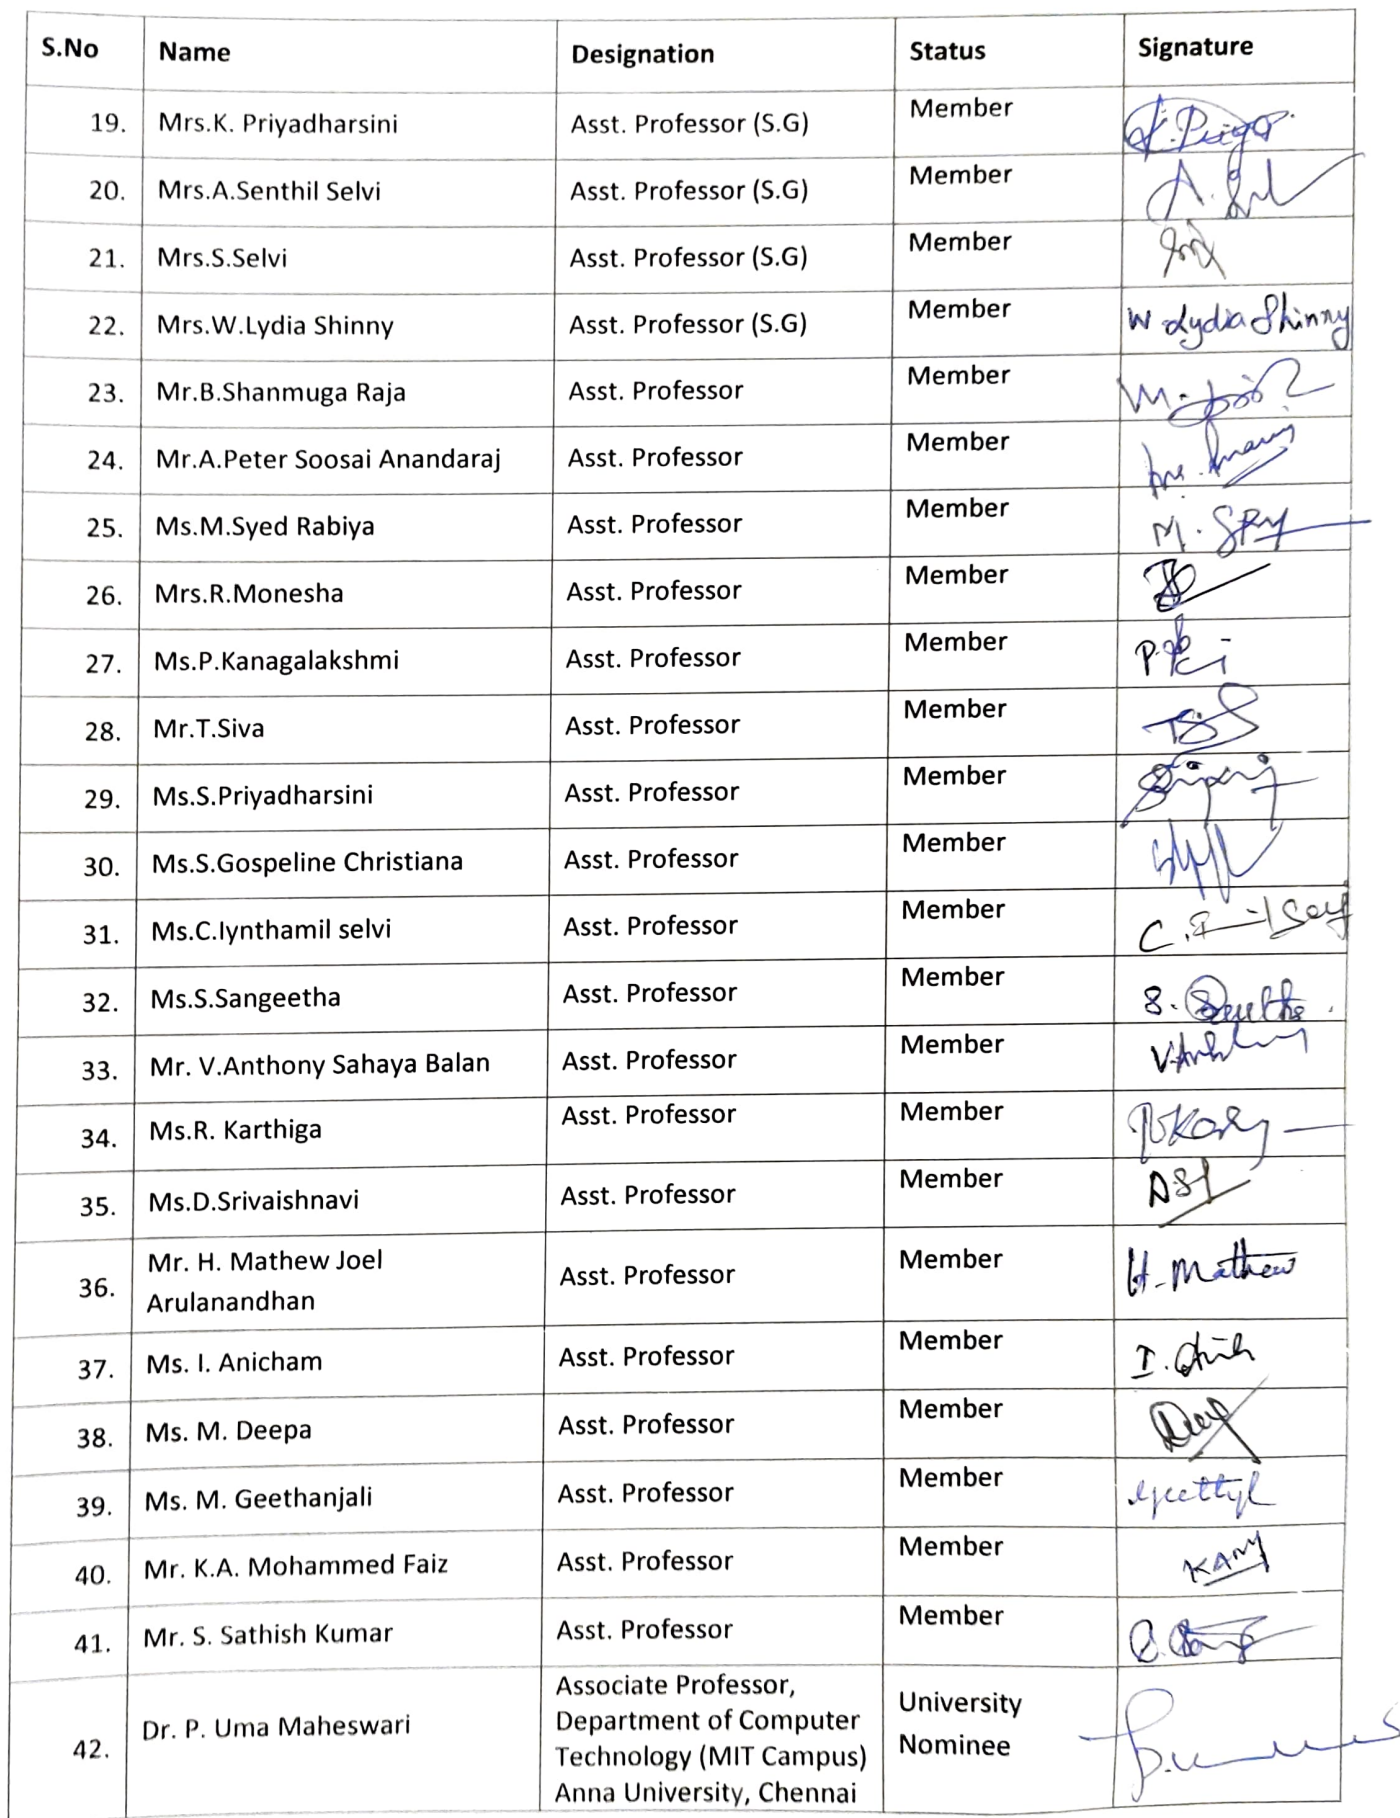 S.No Name Designation Status Signature
19. Mrs.K. Priyadharsini Asst. Professor (S.G) Member
20. Mrs.A.Senthil Selvi Asst. Professor (S.G) Member
21. Mrs.S.Selvi Asst. Professor (S.G) Member
22. Mrs.W.Lydia Shinny Asst. Professor (S.G) Member W Lydia Shinny
23. Mr.B.Shanmuga Raja Asst. Professor Member
24. Mr.A.Peter Soosai Anandaraj Asst. Professor Member
25. Ms.M.Syed Rabiya Asst. Professor Member
26. Mrs.R.Monesha Asst. Professor Member
27. Ms.P.Kanagalakshmi Asst. Professor Member
28. Mr.T.Siva Asst. Professor Member
29. Ms.S.Priyadharsini Asst. Professor Member
30. Ms.S.Gospeline Christiana Asst. Professor Member
31. Ms.C.Iynthamil selvi Asst. Professor Member
32. Ms.S.Sangeetha Asst. Professor Member
33. Mr. V.Anthony Sahaya Balan Asst. Professor Member
34. Ms.R. Karthiga Asst. Professor Member
35. Ms.D.Srivaishnavi Asst. Professor Member
36. Mr. H. Mathew Joel Asst. Professor Member H. Mathew
Arulanandhan
37. Ms. I. Anicham Asst. Professor Member
38. Ms. M. Deepa Asst. Professor Member
39. Ms. M. Geethanjali Asst. Professor Member
40. Mr. K.A. Mohammed Faiz Asst. Professor Member
41. Mr. S. Sathish Kumar Asst. Professor Member
42. Dr. P. Uma Maheswari Associate Professor, University
Department of Computer Nominee
Technology (MIT Campus)
Anna University, Chennai